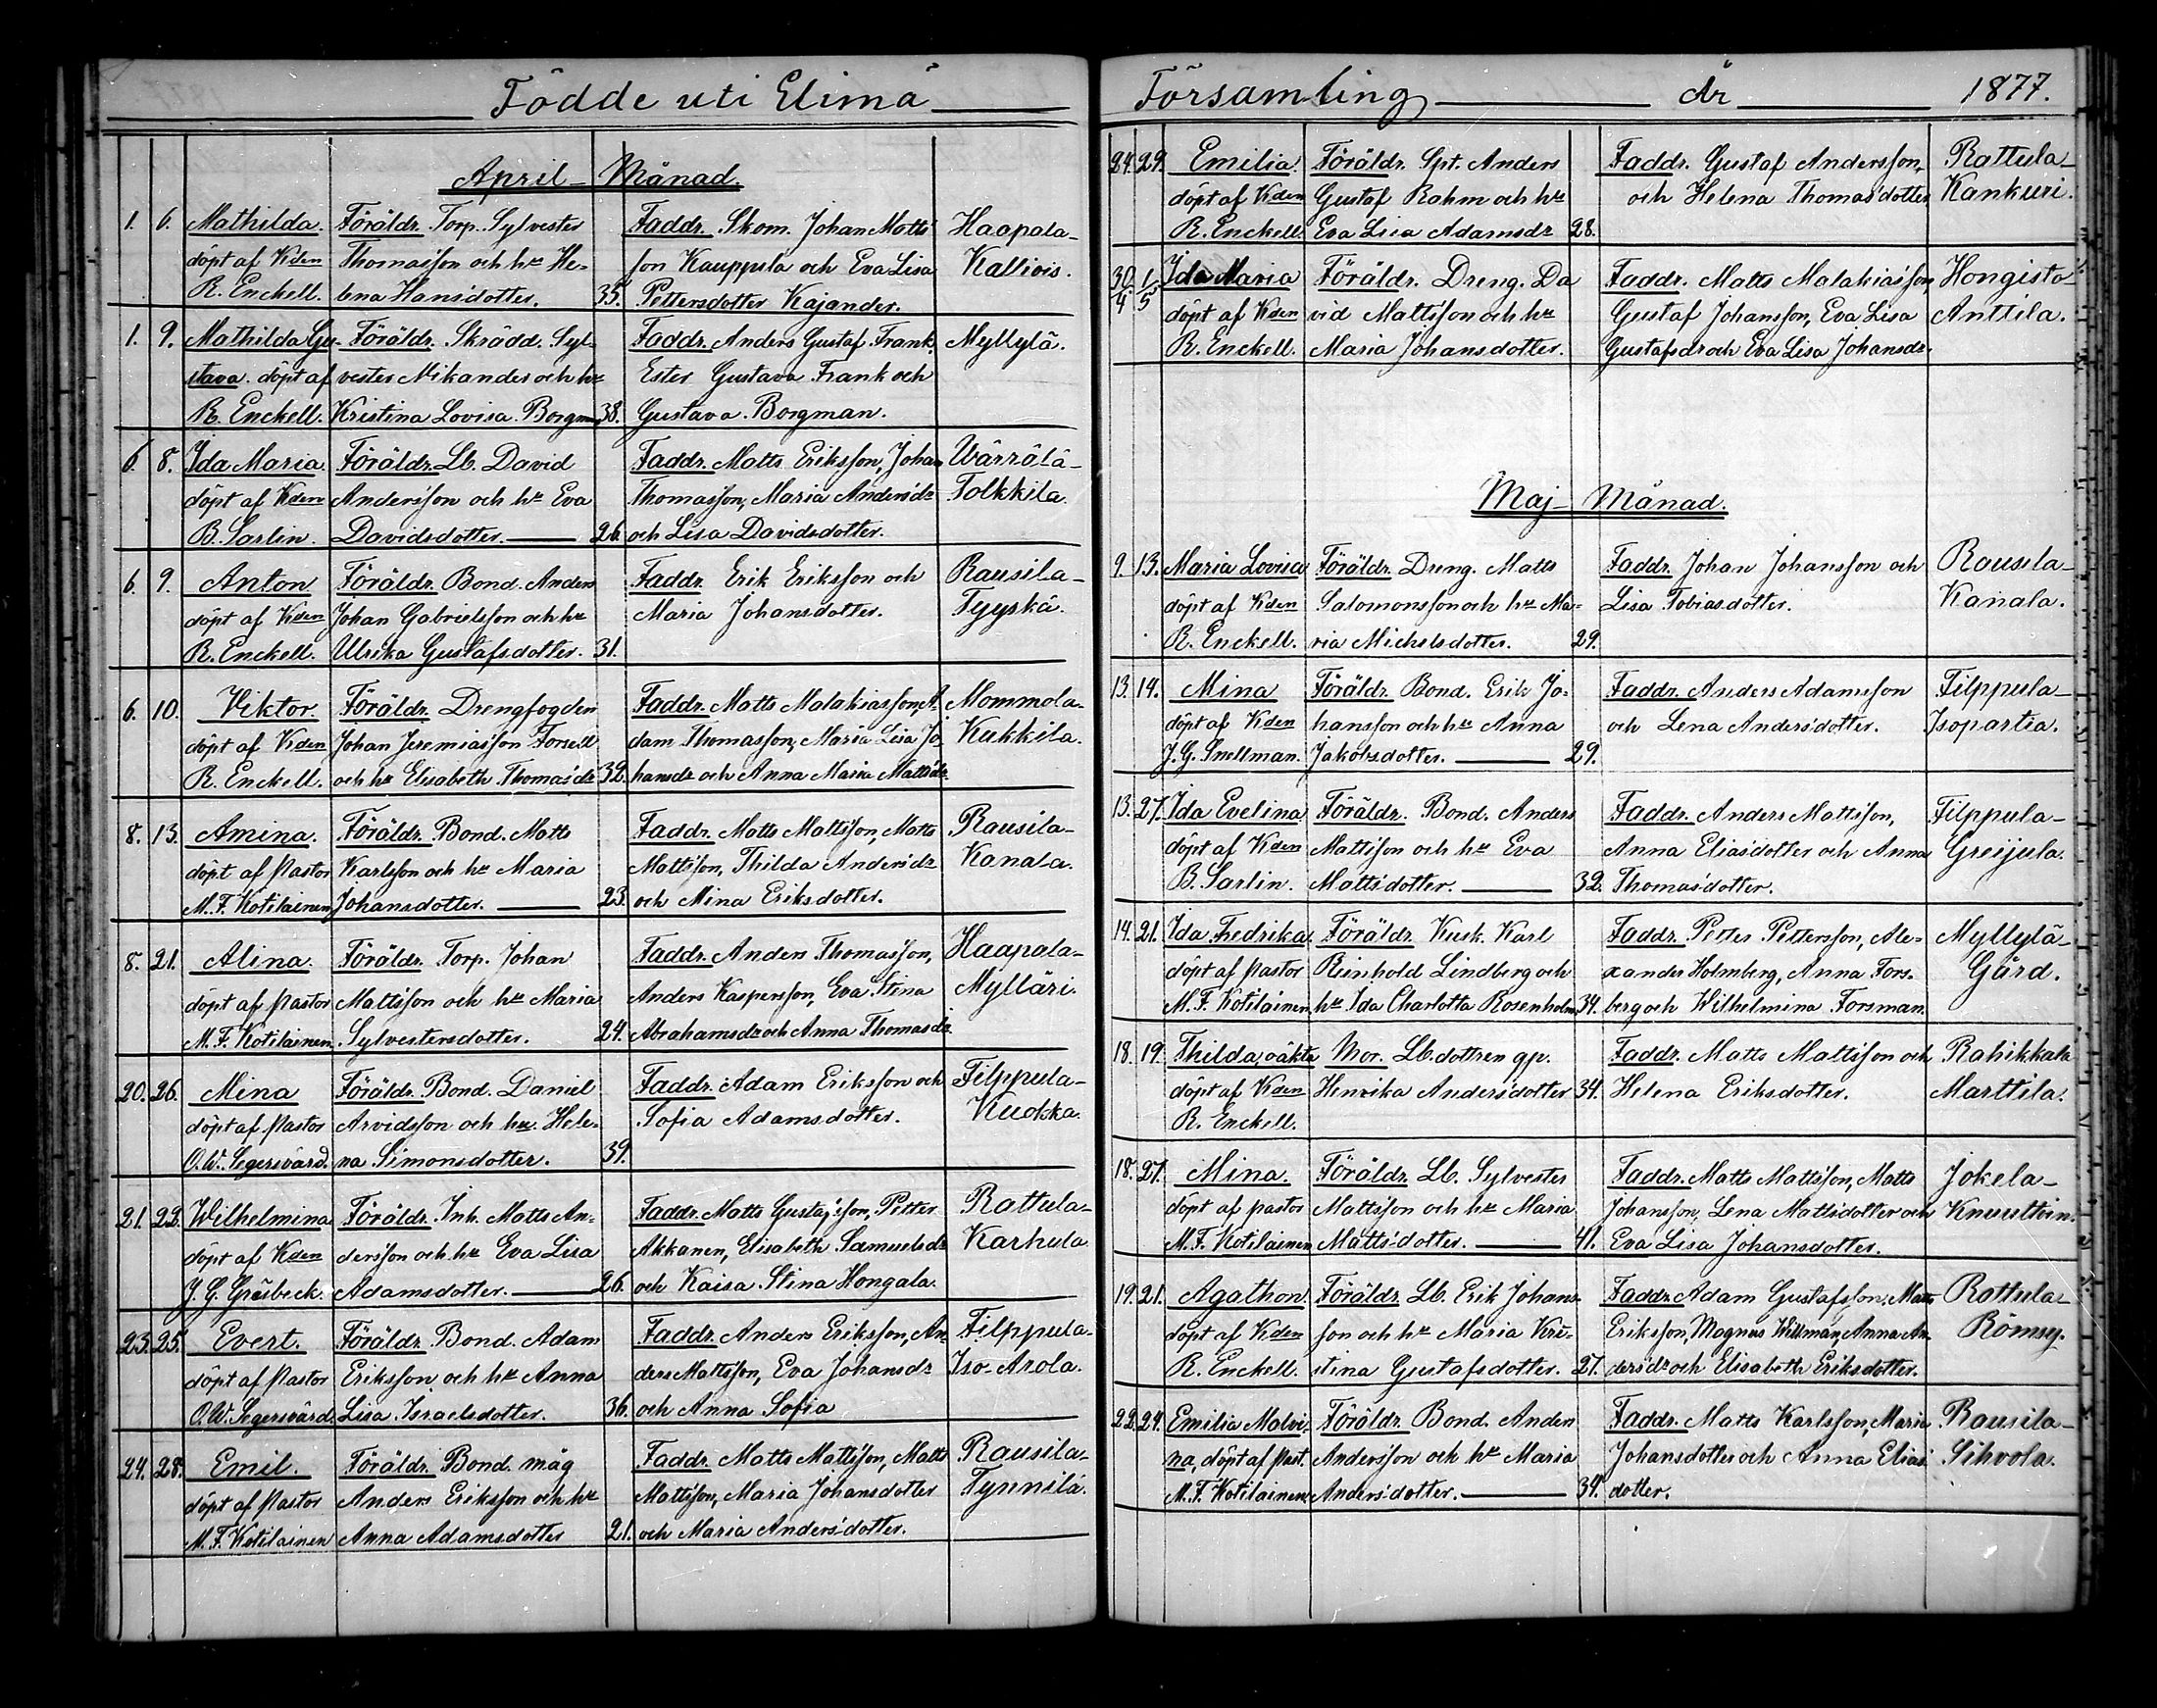 Födde uti Elimä
April Månad.
1. 6. Mathilda. Föräldr. Torp. Sylvester Faddr. Skom. Johan Matts Haapala-
döpt af Kden Thomasson och hr He- son Kauppila och Eva Lisa Kalliois.
R. Enckell. lena Hansdotter. 35. Pettersdotter Kajander.
1. 9. Mathilda Gu- Föräldr. Skrädd. Syl- Faddr. Anders Gustaf Frank, Myllylä.
stava. döpt af vester Nikander och hr Ester Gustava Frank och
R. Enckell. Kristina Lovisa Borgman 38. Gustava Borgman.
6. 8. Ida Maria Föräldr. Lb. David Faddr. Matts Eriksson, Johan Wärrälä-
döpt af Kden Andersson och hr Eva Thomasson, Maria Andersdr Tolkkila.
B. Sarlin. Davidsdotter. 26. och Lisa Davidsdotter.
6. 9. Anton Föräldr. Bond. Anders Faddr. Erik Eriksson och Rausila-
döpt af Kden Johan Gabrielsson och hr Maria Johansdotter. Tyyskä.
R. Enckell. Ulrika Gustafsdotter. 31.
6. 10. Viktor. Föräldr. Drengfogden Faddr. Matts Malakiasson, A Mommola-
döpt af Kden Johan Jeremiasson Forsell dam Thomasson, Maria Lisa Jo Kukkila.
R. Enckell. och hr Elisabeth Thomasdr 32. hansdr och Anna Maria Mattsdr
8. 13. Amina. Föräldr. Bond. Matts Faddr. Matts Mattsson, Matts Rausila-
döpt af Pastor Karlsson och hr Maria Mattsson, Thilda Andersdr Kanala.
M. F. Kotilainen Johansdotter. 23. och Mina Eriksdotter.
8. 21. Alina. Föräldr. Torp. Johan Faddr. Anders Thomasson, Haapala-
döpt af Pastor Mattsson och hr Maria Anders Kaspersson, Eva Stina Mylläri.
M. F. Kotilainen Sylvestersdotter. 24. Abrahamsdr och Anna Thomasdr
20. 26. Mina Föräldr. Bond. Daniel Faddr. Adam Eriksson och Filppula-
döpt af Pastor Arvidsson och hr Hele- Sofia Adamsdotter. Kuokka.
O. W. Segersvärd. na Simonsdotter. 39.
21. 22. Wilhelmina Föräldr. Inh. Matts An- Faddr. Matts Gustafsson, Petter Rattula-
döpt af Kden dersson och hr Eva Lisa Akkanen, Elisabeth Samuelsdr Karhula
J. G. Gräsbeck. Adamsdotter. 26. och Kaisa Stina Hongala.
23. 25. Evert. Föräldr. Bond. Adam Faddr. Anders Eriksson, An- Filppula-
döpt af Pastor Eriksson och hr Anna ders Mattsson, Eva Johansdr Iso-Arola.
O. W. Segersvärd. Lisa Israelsdotter. 36. och Anna Sofia
24. 28. Emil. Föräldr. Bond. måg Faddr. Matts Mattsson, Matts Rausila-
döpt af Pastor Anders Eriksson och hr Mattsson, Maria Johansdotter Tynnilä.
M. F. Kotilainen Anna Adamsdotter 21. och Maria Andersdotter.
Församling År 1877.
24. 29. Emilia. Föräldr. Spt. Anders Faddr. Gustaf Andersson, Rattula-
döpt af Kden Gustaf Rahm och hr och Helena Thomasdotter Kankuri.
R. Enckell. Eva Lisa Adamsdr 28.
30/4 1/5 Ida Maria Föräldr. Dreng. Da Faddr. Matts Malakiasson, Hongisto-
döpt af Kden vid Mattsson och hr Gustaf Johansson, Eva Lisa Anttila.
R. Enckell. Maria Johansdotter. Gustafsdr och Eva Lisa Johansdr.
Maj Månad.
9. 13. Maria Lovisa Föräldr. Dreng. Matts Faddr. Johan Johansson och Rausila-
döpt af Kden Salomonsson och hr Ma- Lisa Tobiasdotter. Kanala.
R. Enckell. ria Michelsdotter. 29.
13. 14. Mina Föräldr. Bond. Erik Jo- Faddr. Anders Adamsson Filppula-
döpt af Kden hansson och hr Anna och Lena Andersdotter. Isopartia.
J. G. Snellman. Jakobsdotter. 29.
13. 27. Ida Evelina Föräldr. Bond. Anders Faddr. Anders Mattsson, Filppula-
döpt af Kden Mattsson och hr Eva Anna Eliasdotter och Anna Greijula.
B. Sarlin. Mattsdotter. 32. Thomasdotter.
14. 21. Ida Fredrika. Föräldr. Kusk. Karl Faddr. Petter Pettersson, Ale- Myllylä-
döpt af pastor Reinhold Lindberg och xander Holmberg, Anna Fors- Gård.
M. F. Kotilainen hr Ida Charlotta Rosenholm 34. berg och Wilhelmina Forsman.
18. 19. Thilda, oäkta Mor. Lb. dottren gp. Faddr. Matts Mattsson och Rahikkala
döpt af Kden Henrika Andersdotter 34. Helena Eriksdotter. Marttila.
R. Enckell.
18. 27. Mina. Föräldr. Lb. Sylvester Faddr. Matts Mattsson, Matts Jokela-
döpt af pastor Mattsson och hr Maria Johansson, Lena Mattsdotter och Knuuttin.
M. F. Kotilainen Mattsdotter. 41. Eva Lisa Johansdotter.
19. 21. Agathon. Föräldr. Lb. Erik Johans- Faddr. Adam Gustafsson, Matts Rattula-
döpt af Kden son och hr Maria Kri- Eriksson, Magnus Willman, Anna An- Römsy.
R. Enckell. stina Gustafsdotter. 27. dersdr och Elisabeth Eriksdotter.
22. 24. Emilia Malvi- Föräldr. Bond. Anders Faddr. Matts Karlsson, Maria Rausila-
na, döpt af Past. Andersson och hr Maria Johansdotter och Anna Elias Sihvola.
M. F. Kotilainen Andersdotter. 34. dotter.